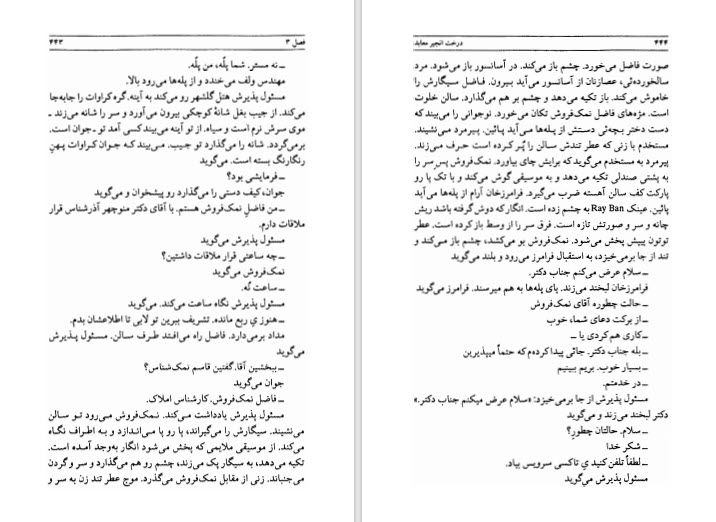 فصل ۳ ۴۴۳
ــ نه مستر. شما پلّه، من پلّه.
مهندس ولف می‌خندد و از پله‌ها می‌رود بالا.
مسئول پذیرش هتل گلشهر رو می‌کند به آینه. گره کراوات را جابه‌جا
می‌کند. از جیب بغل شانهٔ کوچکی بیرون می‌آورد و سر را شانه می‌زند ــ
موی سرش نرم است و سیاه. از تو آینه می‌بیند کسی آمد تو ــ جوان است.
برمی‌گردد. شانه را می‌گذارد تو جیب. می‌بیند که جوان کراوات پهنِ
رنگارنگ بسته است. می‌گوید
ــ فرمایشی بود؟
جوان، کیف دستی را می‌گذارد رو پیشخوان و می‌گوید
ــ من فاضل نمک‌فروش هستم. با آقای دکتر منوچهر آذرشناس قرار
ملاقات دارم.
مسئول پذیرش می‌گوید
ــ چه ساعتی قرار ملاقات داشتین؟
نمک‌فروش می‌گوید
ــ ساعت نُه.
مسئول پذیرش نگاه ساعت می‌کند. می‌گوید
ــ هنوز ی ربع مانده. تشریف ببرین تو لابی تا اطلاعشان بدم.
مداد برمی‌دارد. فاضل راه می‌افتد طرف سالن. مسئول پذیرش
می‌گوید
ــ ببخشین آقا. گفتین قاسم نمک‌شناس؟
جوان می‌گوید
ــ فاضل نمک‌فروش. کارشناس املاک.
مسئول پذیرش یادداشت می‌کند. نمک‌فروش می‌رود تو سالن
می‌نشیند. سیگارش را می‌گیراند، پا رو پا می‌اندازد و به اطراف نگاه
می‌کند. از موسیقی ملایمی که پخش می‌شود انگار به‌وجد آمده است.
تکیه می‌دهد، به سیگار پک می‌زند، چشم رو هم می‌گذارد و سر و گردن
می‌جنباند. زنی از مقابل نمک‌فروش می‌گذرد. موج عطر تند زن به سر و
۴۴۴ درخت انجیر معابد
صورت فاضل می‌خورد. چشم باز می‌کند. در آسانسور باز می‌شود. مرد
سالخورده‌ئی، عصازنان از آسانسور می‌آید بیرون. فاضل سیگارش را
خاموش می‌کند. باز تکیه می‌دهد و چشم بر هم می‌گذارد. سالن خلوت
است. مژه‌های فاضل نمک‌فروش تکان می‌خورد. نوجوانی را می‌بیند که
دست دختر بچه‌ئی دستش از پله‌ها می‌آید پائین. پیرمرد می‌نشیند.
مستخدم با زنی که عطر تندش سالن را پُر کرده است حرف می‌زند.
پیرمرد به مستخدم می‌گوید که برایش چای بیاورد. نمک‌فروش پس سر را
به پشتی صندلی تکیه می‌دهد و به موسیقی گوش می‌کند و با تک پا رو
پارکت کف سالن آهسته ضرب می‌گیرد. فرامرزخان آرام از پله‌ها می‌آید
پائین. عینک Ray Ban به چشم زده است. انگار که دوش گرفته باشد ریش
چانه و سر و صورتش تازه است. فرق سر را از وسط باز کرده است. عطر
توتون پیپش پخش می‌شود. نمک‌فروش بو می‌کشد، چشم باز می‌کند و
تند از جا برمی‌خیزد، به استقبال فرامرز می‌رود و بلند می‌گوید
ــ سلام عرض می‌کنم جناب دکتر.
فرامرزخان لبخند می‌زند. پای پله‌ها به هم میرسند. فرامرز می‌گوید
ــ حالت چطوره آقای نمک‌فروش
ــ از برکت دعای شما، خوب
ــ کاری هم کردی یا ــ
ــ بله جناب دکتر. جائی پیدا کرده‌م که حتماً میپذیرین
ــ بسیار خوب. بریم ببینیم
ــ در خدمتم.
مسئول پذیرش از جا برمی‌خیزد: «سلام عرض میکنم جناب دکتر.»
دکتر لبخند می‌زند و می‌گوید
ــ سلام. حالتان چطورِ؟
ــ شکر خدا
ــ لطفاً تلفن کنید ی تاکسی سرویس بیاد.
مسئول پذیرش می‌گوید